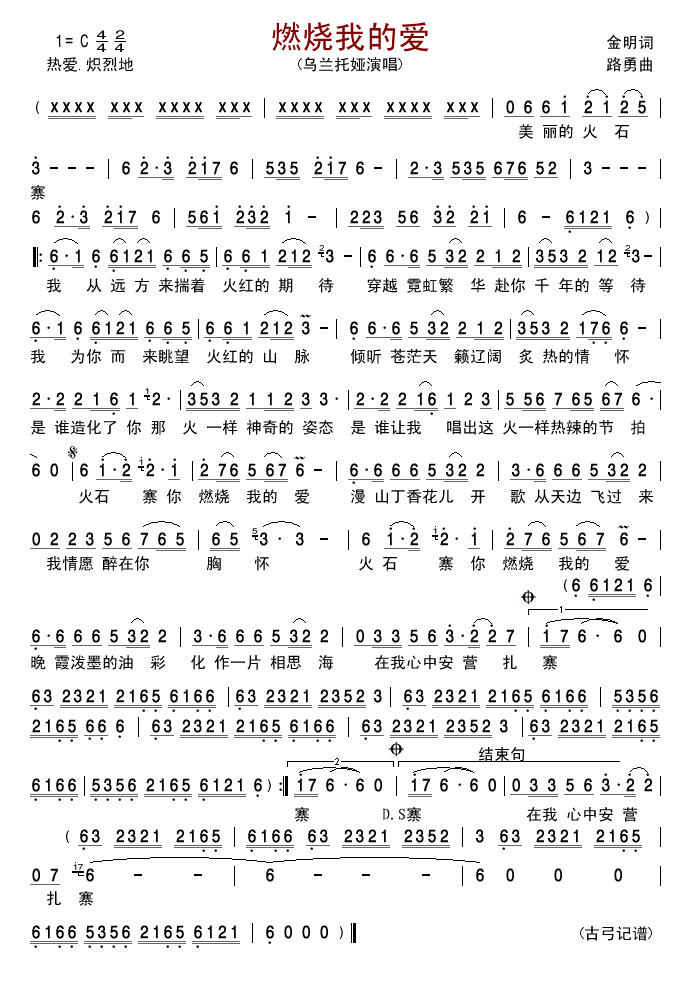 燃烧我的爱
1= C 4/4 2/4
金明词
热爱.炽烈地
(乌兰托娅演唱)
路勇曲
( xxxx xxxx xxxx xxxx | xxxx xxxx xxxx xxxx | 0 6 6 i 2 i 2 5 |
美 丽的 火 石
3 - - - | 6 2·3 2i7 6 | 535 2i7 6 - | 2·3 535 676 52 | 3 - - - |
寨
6 2·3 2i7 6 | 56i 232 i - | 223 56 32 2i | 6 - 6121 6 )
‖: 6·1 6 6121 6 6 5 | 6 6 1 212 3 - | 6 6·6 5 32 212 1 2 | 353 2 12 3 - |
我 从 远 方 来揣着 火红的 期 待 穿越 霓虹繁 华 赴你 千 年的 等 待
6·1 6 6121 6 6 5 | 6 6 1 212 3 - | 6 6·6 5 32 212 | 353 2 176 6 - |
我 为你 而 来眺望 火红的 山 脉 倾听 苍茫天 籁辽阔 炙 热的情 怀
2·2 2 2 1 6 1 2· | 353 2 1 1 2 3 2 | 2·2 2 1 6 1 2 3 | 5 56 7 65 67 6· |
是 谁造化了 你 那 火 一样 神奇的 姿态 是 谁让我 唱出这 火一样热辣的节 拍
6 0 | 6 i·2 2·i | 2 76 5 67 6 - | 6·6 6 6 5 32 2 | 3·6 6 6 5 32 2 |
火石 寨 你 燃烧 我的 爱 漫 山丁香花儿 开 歌 从天边 飞过 来
0 2 2 3 5 6 7 6 5 | 6 5 3· 3 - | 6 i·2 2·i | 2 7 6 5 6 7 6 - |
我情愿 醉在你 胸 怀 火 石 寨 你 燃烧 我的 爱
(6 6121 6
6·6 6 6 5 32 2 | 3·6 6 6 5 32 2 | 0 3 3 5 6 3·2 2 7 | i7 6·6 0
晚 霞泼墨的油 彩 化 作一片 相思 海 在我心中安 营 扎 寨
63 2321 2165 6166 | 63 2321 2321 2352 3 | 63 2321 2165 6166 | 5356
2165 66 6 | 63 2321 2165 6166 | 63 2321 2352 3 | 63 2321 2165
结束句
6166 | 5356 2165 6121 6 ) :‖ i7 6·6 0 | i7 6·6 0 | 0 3 3 5 6 3·2 2
寨 D.S寨 在我 心中安 营
( 63 2321 2165 | 6166 63 2321 2352 | 3 63 2321 2165 |
0 7 i7 6 - - | 6 - - | 6 0 0 0
扎 寨
6166 5356 2165 6121 | 6 0 0 0 ) ‖
(古弓记谱)